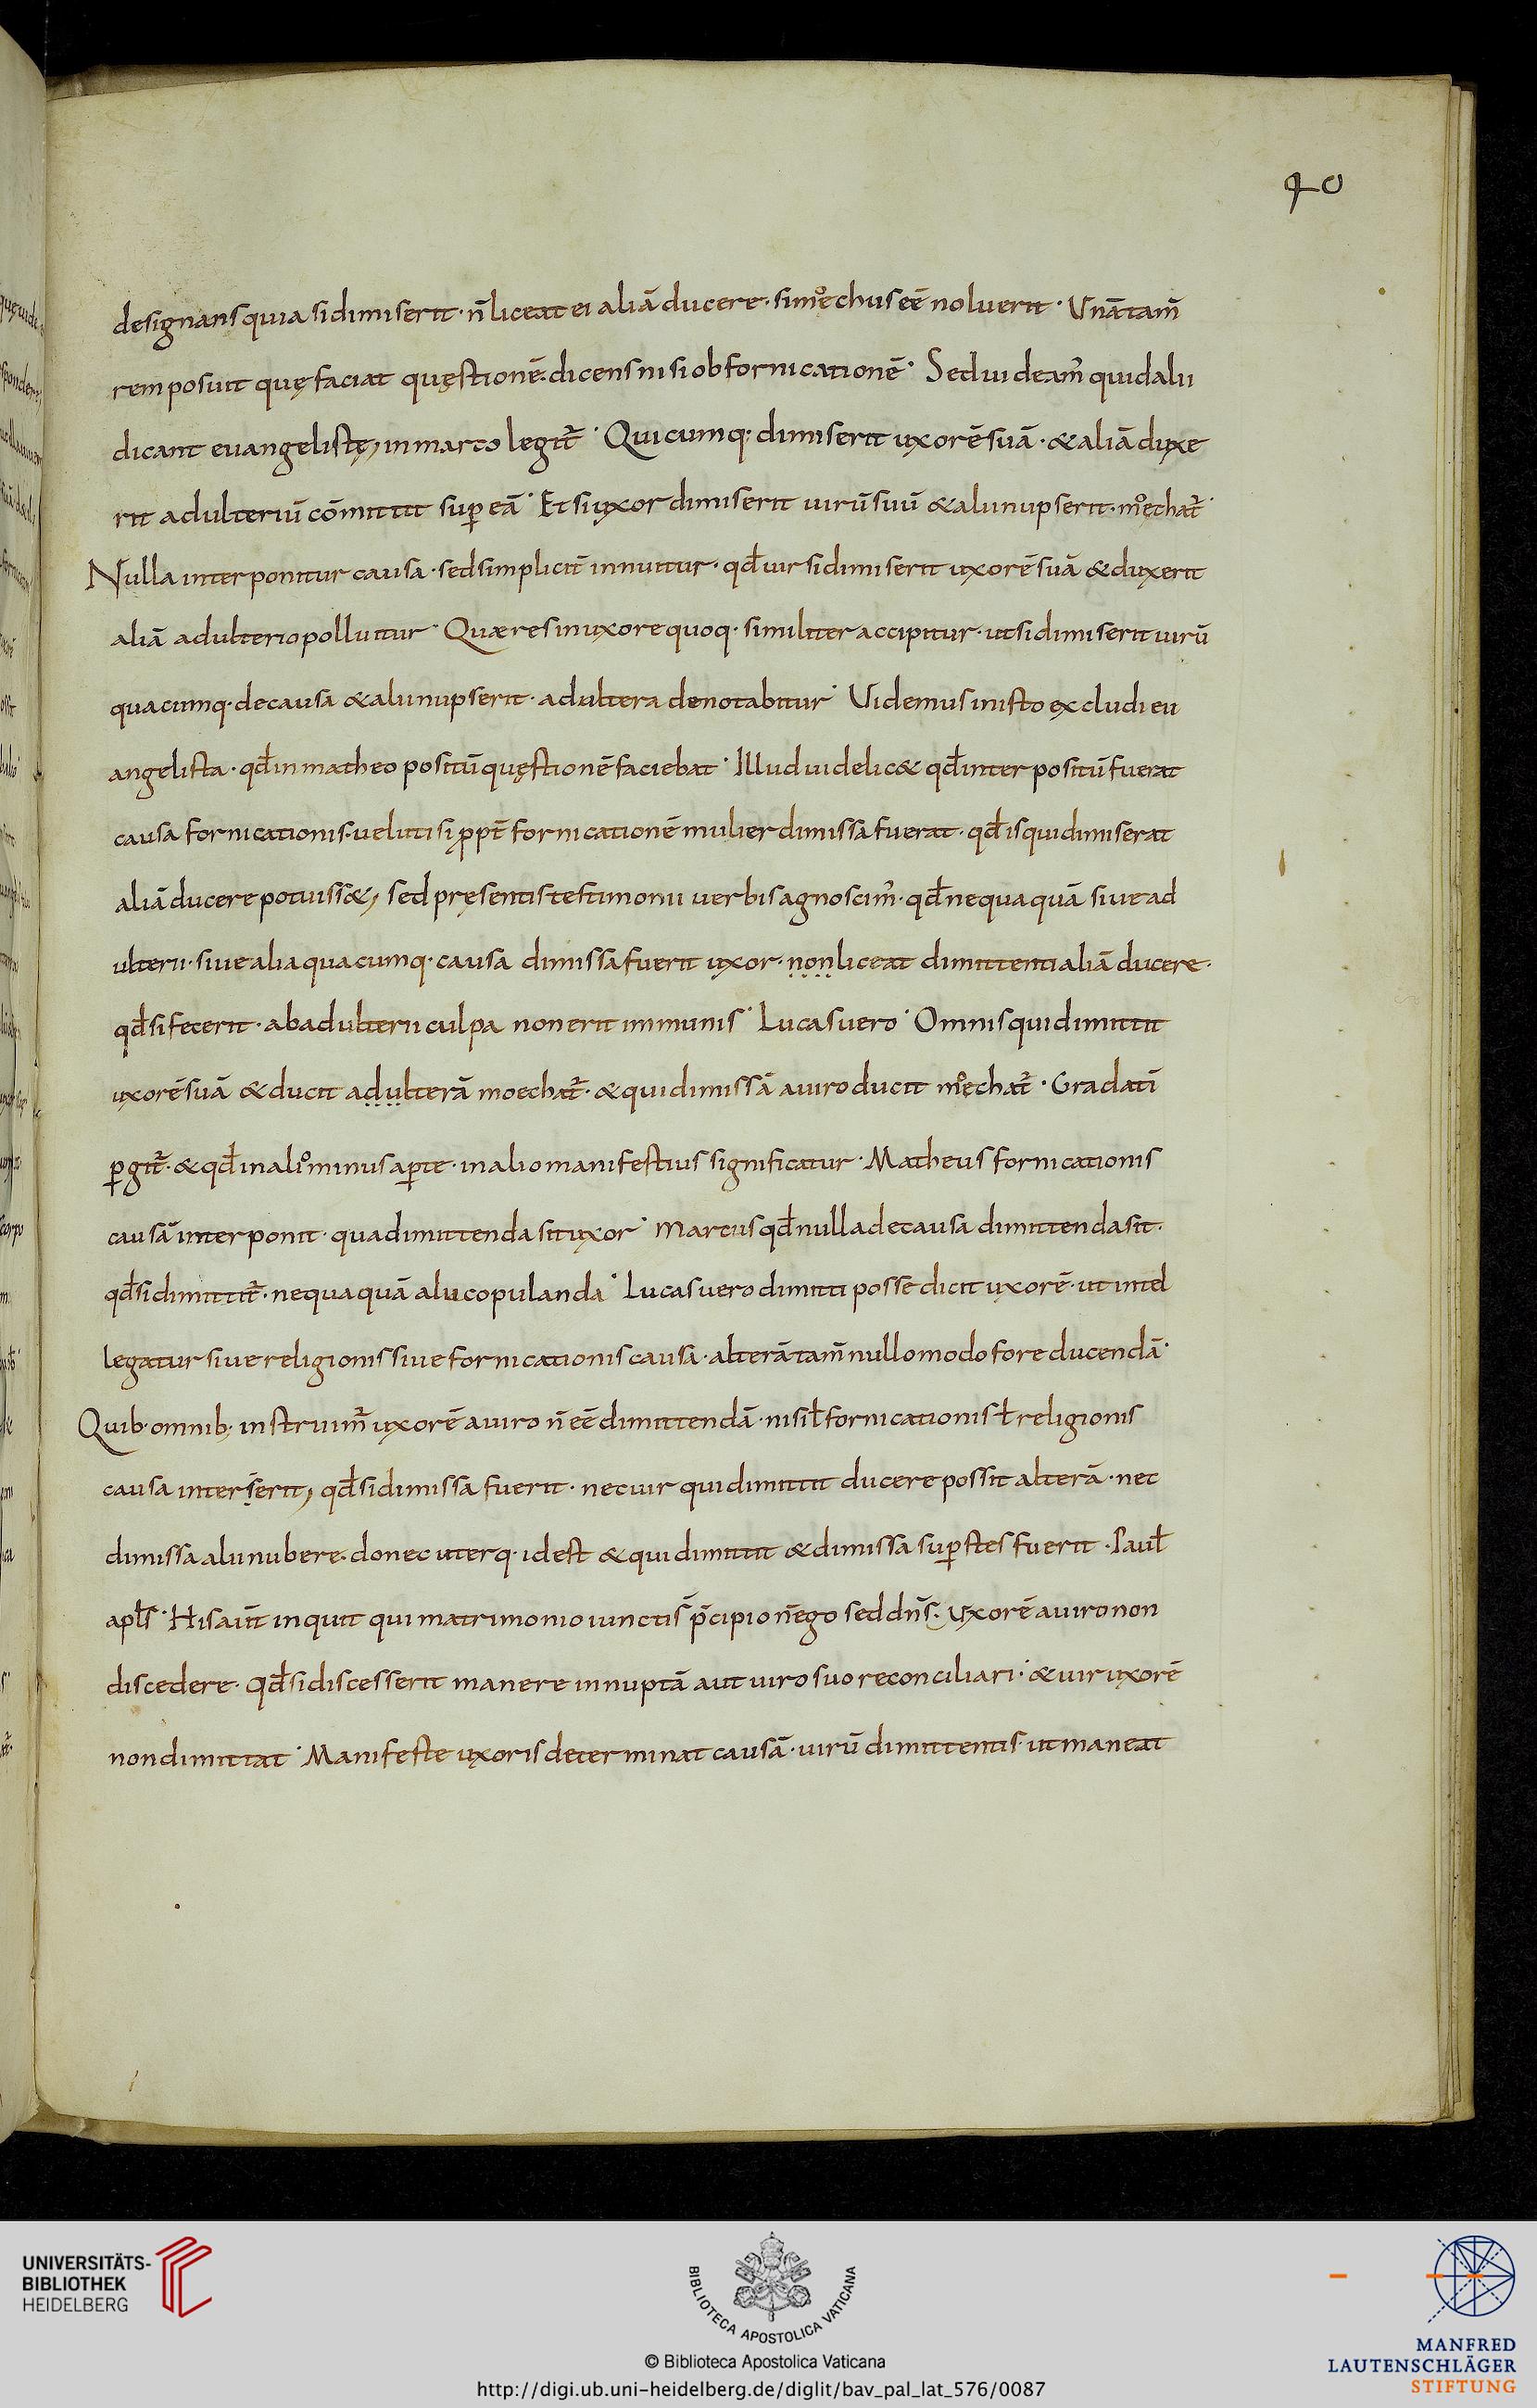 40
designans quia si dimiserit · n̄ liceat ei aliā ducere · si mo̊echus eē noluerit · Unā tam̄
rem posuit quę faciat quęstionē · dicens nisi ob fornicationē · Sed uideam̄ quid alii
dicant euangelistę, in marco legit̄ · Quicumq· dimiserit uxorē suā · & aliā duxe
rit adulteriū cōmittit sup̱ eā · Et si uxor dimiserit uirū suū & alii nupserit · mo̊echat̄ ·
Nulla interponitur causa · sed simplicit̄ innuitur · qđ uir si dimiserit uxorē suā & duxerit
aliā adulterio polluitur · Quæ res in uxore quoq· similiter accipitur · ut si dimiserit uirū
quacumq· de causa & alii nupserit · adultera denotabitur · Videmus in isto excludi eu
angelista · qđ in matheo positū quęstionē faciebat · Illud uidelic& qđ interpositū fuerat
causa fornicationis · ueluti si ppt̄ fornicationē mulier dimissa fuerat · qđ is qui dimiserat
aliā ducere potuiss&, sed pręsentis testimonii uerbis agnoscim̄ · qđ nequaquā siue ad
ulterii · siue alia quacumq· causa dimissa fuerit uxor · non liceat dimittenti aliā ducere ·
qđ si fecerit · ab adulterii culpa non erit immunis · Lucas uero · Omnis qui dimittit
uxorē suā & ducit adulterā moechat̄ · & qui dimissā a uiro ducit mo̊echat̄ · Gradatī
p̱git̄ · & qđ in alio̊ minus ap̱te · in alio manifestius significatur · Matheus fornicationis
causā interponit · qua dimittenda sit uxor · Marcus qđ nulla de causa dimittenda sit ·
qđ si dimittit̄ · nequaquā alii copulanda · Lucas uero dimitti posse dicit uxorē · ut intel
legatur siue religionis siue fornicationis causa · alterā tam̄ nullo modo fore ducendā ·
Quib· omnib· instruim̄ uxorē a uiro n̄ eē dimittendā · nisi ł fornicationis ł religionis
causa interserit, qđ si dimissa fuerit · nec uir qui dimittit ducere possit alterā · nec
dimissa alii nubere · donec uterq· id est & qui dimittit & dimissa sup̱stes fuerit · Pauł
apłs · His aūt inquit qui matrimonio iuncti s̄ p̄cipio n̄ ego sed dn̄s · Uxorē a uiro non
discedere · Qđ si discesserit manere innuptā aut uiro suo reconciliari · & uir uxorē
non dimittat · Manifeste uxoris determinat causā · uirū dimittentis · ut maneat
UNIVERSITÄTS-
BIBLIOTHEK
HEIDELBERG
BIBLIOTECA APOSTOLICA VATICANA
© Biblioteca Apostolica Vaticana
http://digi.ub.uni-heidelberg.de/diglit/bav_pal_lat_576/0087
MANFRED
LAUTENSCHLÄGER
STIFTUNG